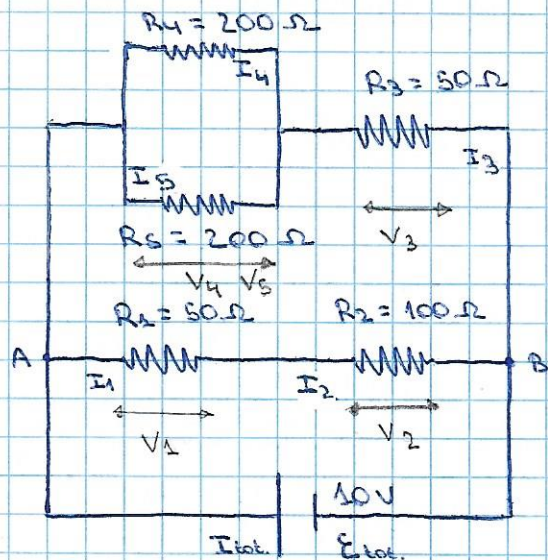 R4 = 200 Ω
I4
R3 = 50 Ω
I5
I3
R5 = 200 Ω
V3
V4 V5
R1 = 50 Ω
R2 = 100 Ω
A
B
I1
I2.
V1
V2
10V
Itot.
Ɛtot.